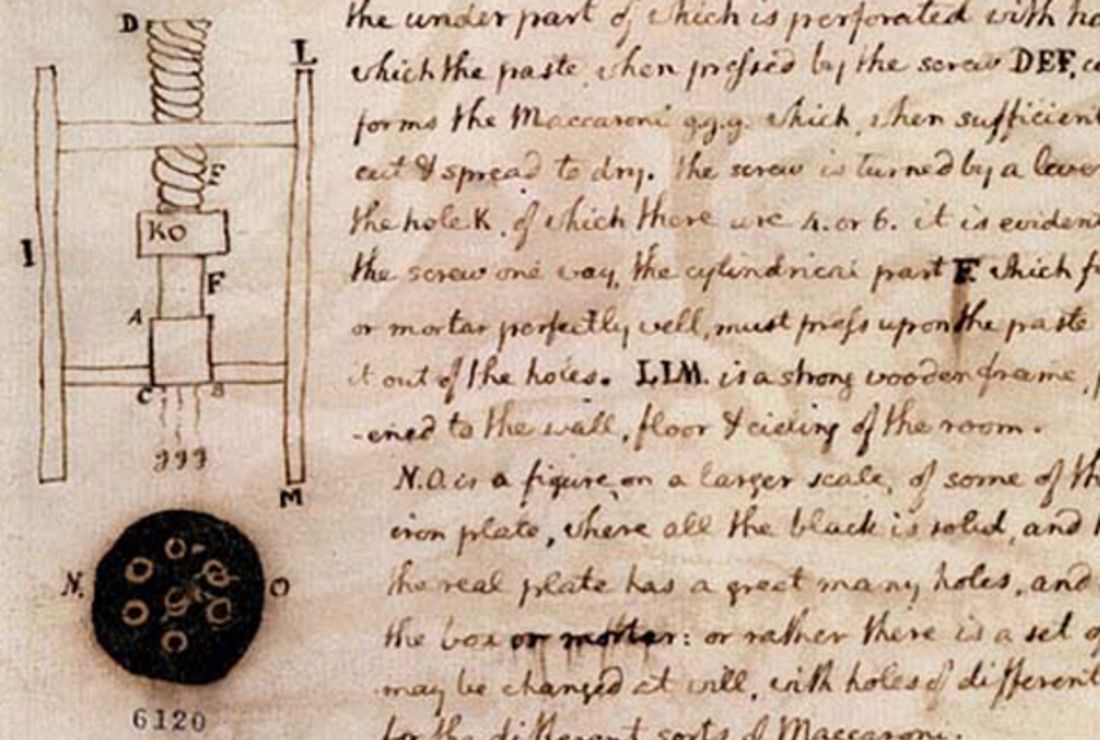 D
L
I
E
KO
F
A
C B
ggg
M
N. O
6120
the under part of which is perforated with ho
which the paste, when pressed by the screw DEF, co
forms the Maccaroni g.g.g. which, when sufficient
cut & spread to dry. the screw is turned by a lever
the hole K, of which there are 4. or 6. it is evident
the screw one way, the cylindrical part F. which f
or mortar perfectly well, must press upon the paste
it out of the holes. LLM. is a strong wooden frame,
-ened to the wall, floor & cieling of the room.
N.O. is a figure, on a larger scale, of some of th
iron plate, where all the black is solid, and
the real plate has a great many holes, and
the box or mortar: or rather there is a set of
may be changed at will, with holes of different
for the different sorts of Maccaroni.